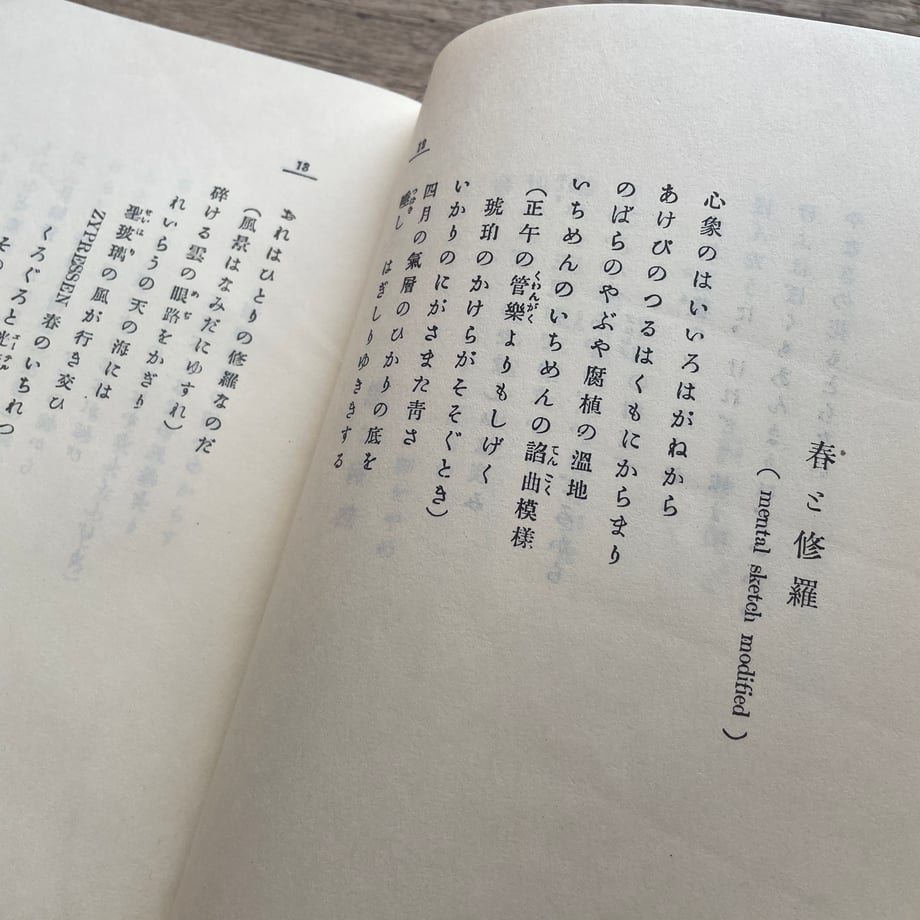 春と修羅
(mental sketch modified)
心象のはいいろはがねから
あけびのつるはくもにからまり
のばらのやぶや腐植の濕地
いちめんのいちめんの諂曲模様
てんごく
(正午の管樂よりもしげく
くわんがく
琥珀のかけらがそそぐとき)
いかりのにがさまた靑さ
四月の氣層のひかりの底を
唾し はぎしりゆききする
つばき
19
18
おれはひとりの修羅なのだ
(風景はなみだにゆすれ)
碎ける雲の眼路をかぎり
めぢ
れいらうの天の海には
聖玻璃の風が行き交ひ
せいはり
ZYPRESSEN 春のいちれつ
くろぐろと光
その